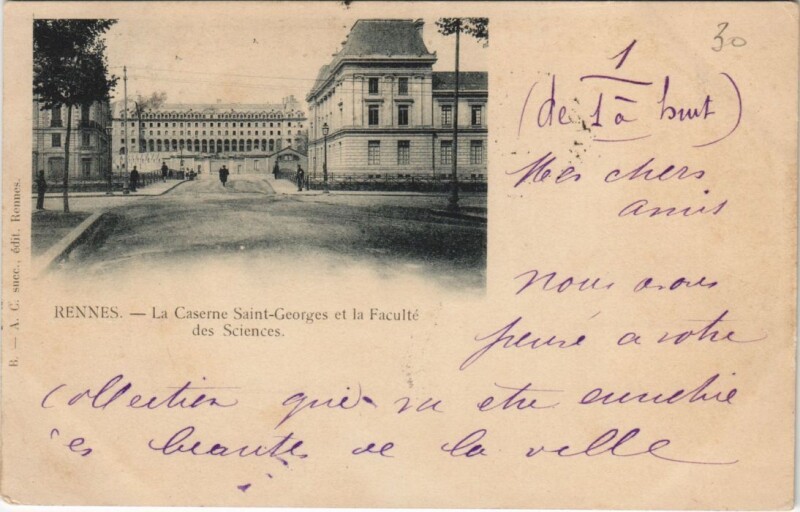 30
1
(de 1 à huit)
Mes chers
amis
nous avons
pensé a votre
Collection qui va etre enrichie
des beautes de la ville
RENNES. — La Caserne Saint-Georges et la Faculté
des Sciences.
B. — A. C. succ., édit. Rennes.